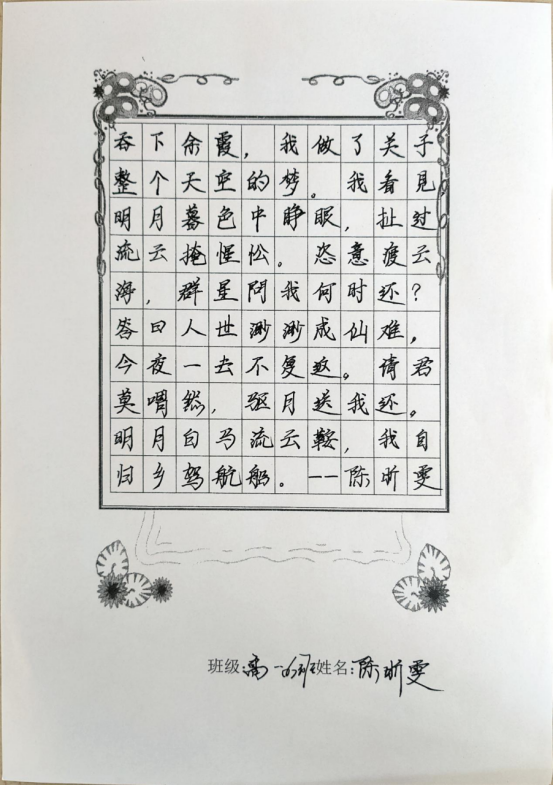 吞下余霞，我做了关于
整个天空的梦。我看見
明月暮色中睁眼，扯过
流云掩惺忪。恣意渡云
海，群星問我何时还？
答曰人世渺渺成仙难，
今夜一去不复返。请君
莫喟然，驱月送我还。
明月白马流云鞍，我自
归乡驾航船。——陈昕雯
班级:高一(6)班姓名:陈昕雯